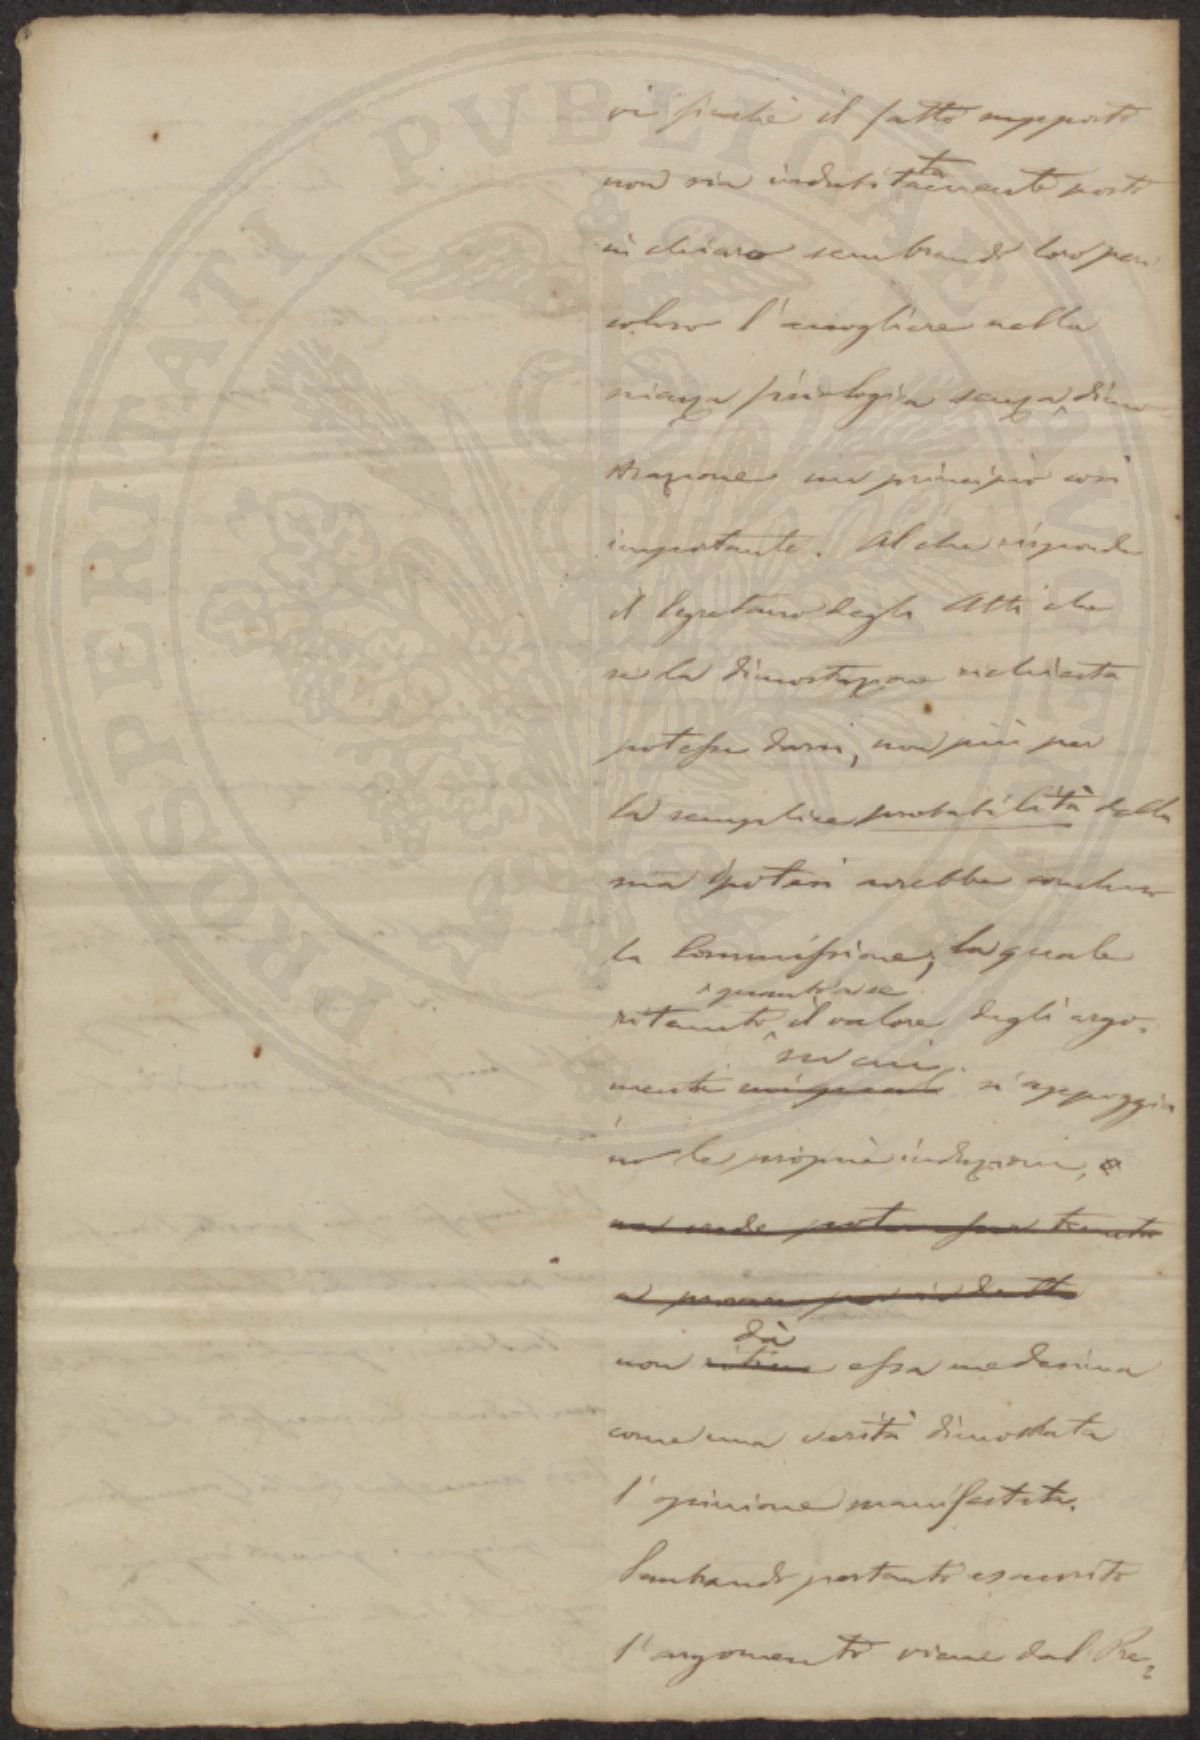 PROSPERITATI PVBLICAE AVGENDAE
vi finchè il fatto supposto
non sia indubitatamente posto
in chiaro sembrando loro peri
coloso l'accogliere nella
scienza fisiologica senza dimo-
strazione un principio così
importante. Al che risponde
il Segretario degli Atti che
se la dimostrazione richiesta
potesse darsi, non più per
la semplice probabilità della
sua ipotesi avrebbe concluso
la Commissione, la quale
quantunque
ritenuto il valore degli argo-
su cui
menti sui quali si appoggia
no le proprie induzioni, e
tenuta
dà
non ritiene essa medesima
come una verità dimostrata
l'opinione manifestata.
Sembrando pertanto esaurito
l'argomento viene dal Pre-